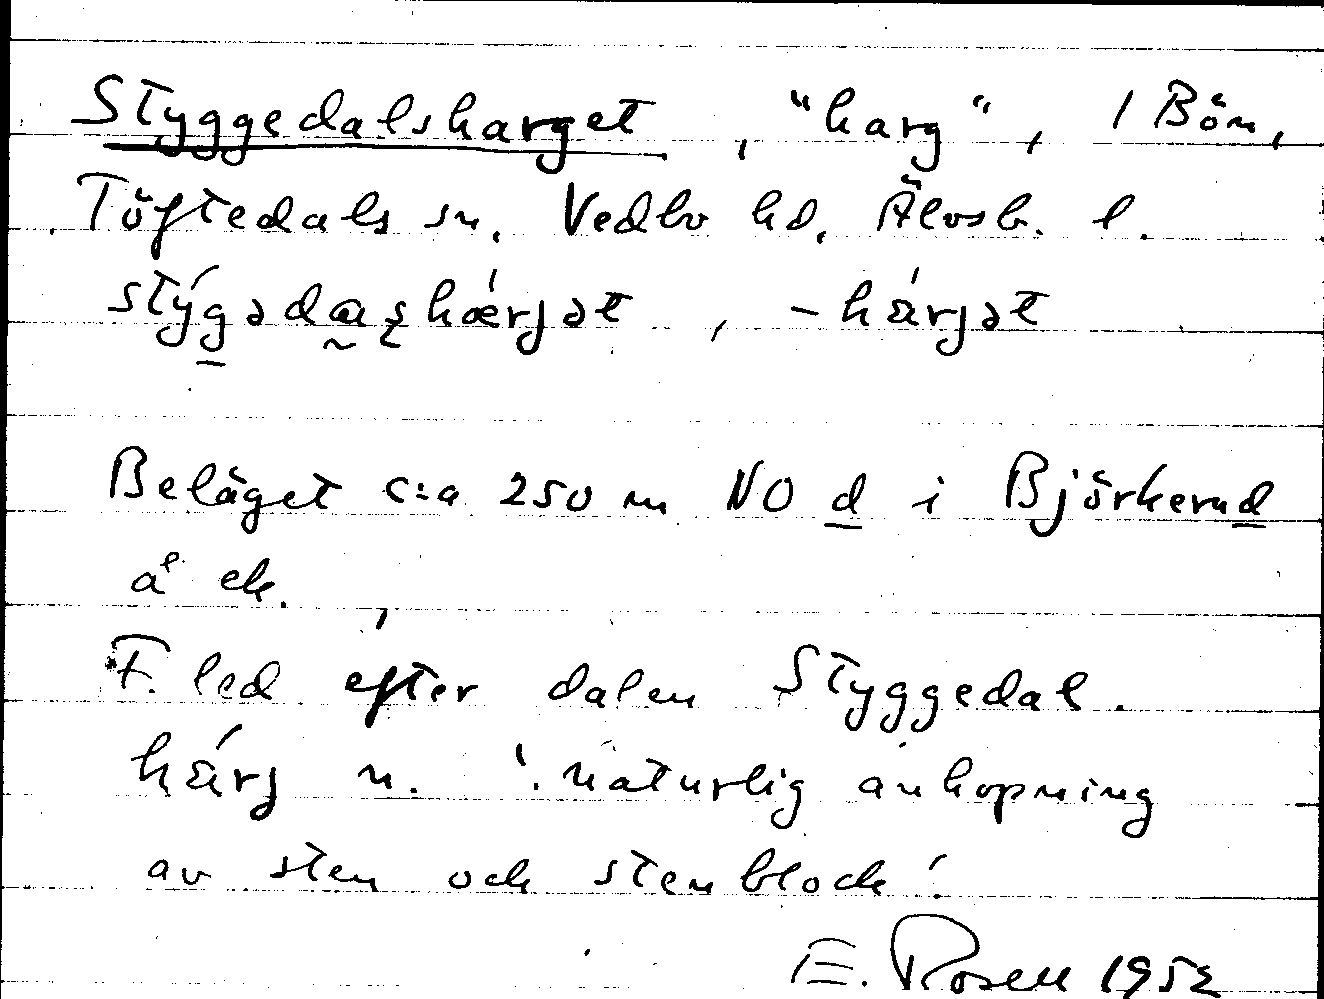 Styggedalsharget, "harg", 1 Bön,
Töftedals sn. Vedbo hd, Älvsb. l.
stýgədaʂhǽrjət, -hárjət
Beläget c:a 250 m NO d i Björkerud
å ek.
F. led efter dalen Styggedal.
hárj n. 'naturlig anhopning
av sten och stenblock'.
E. Rosell 1952